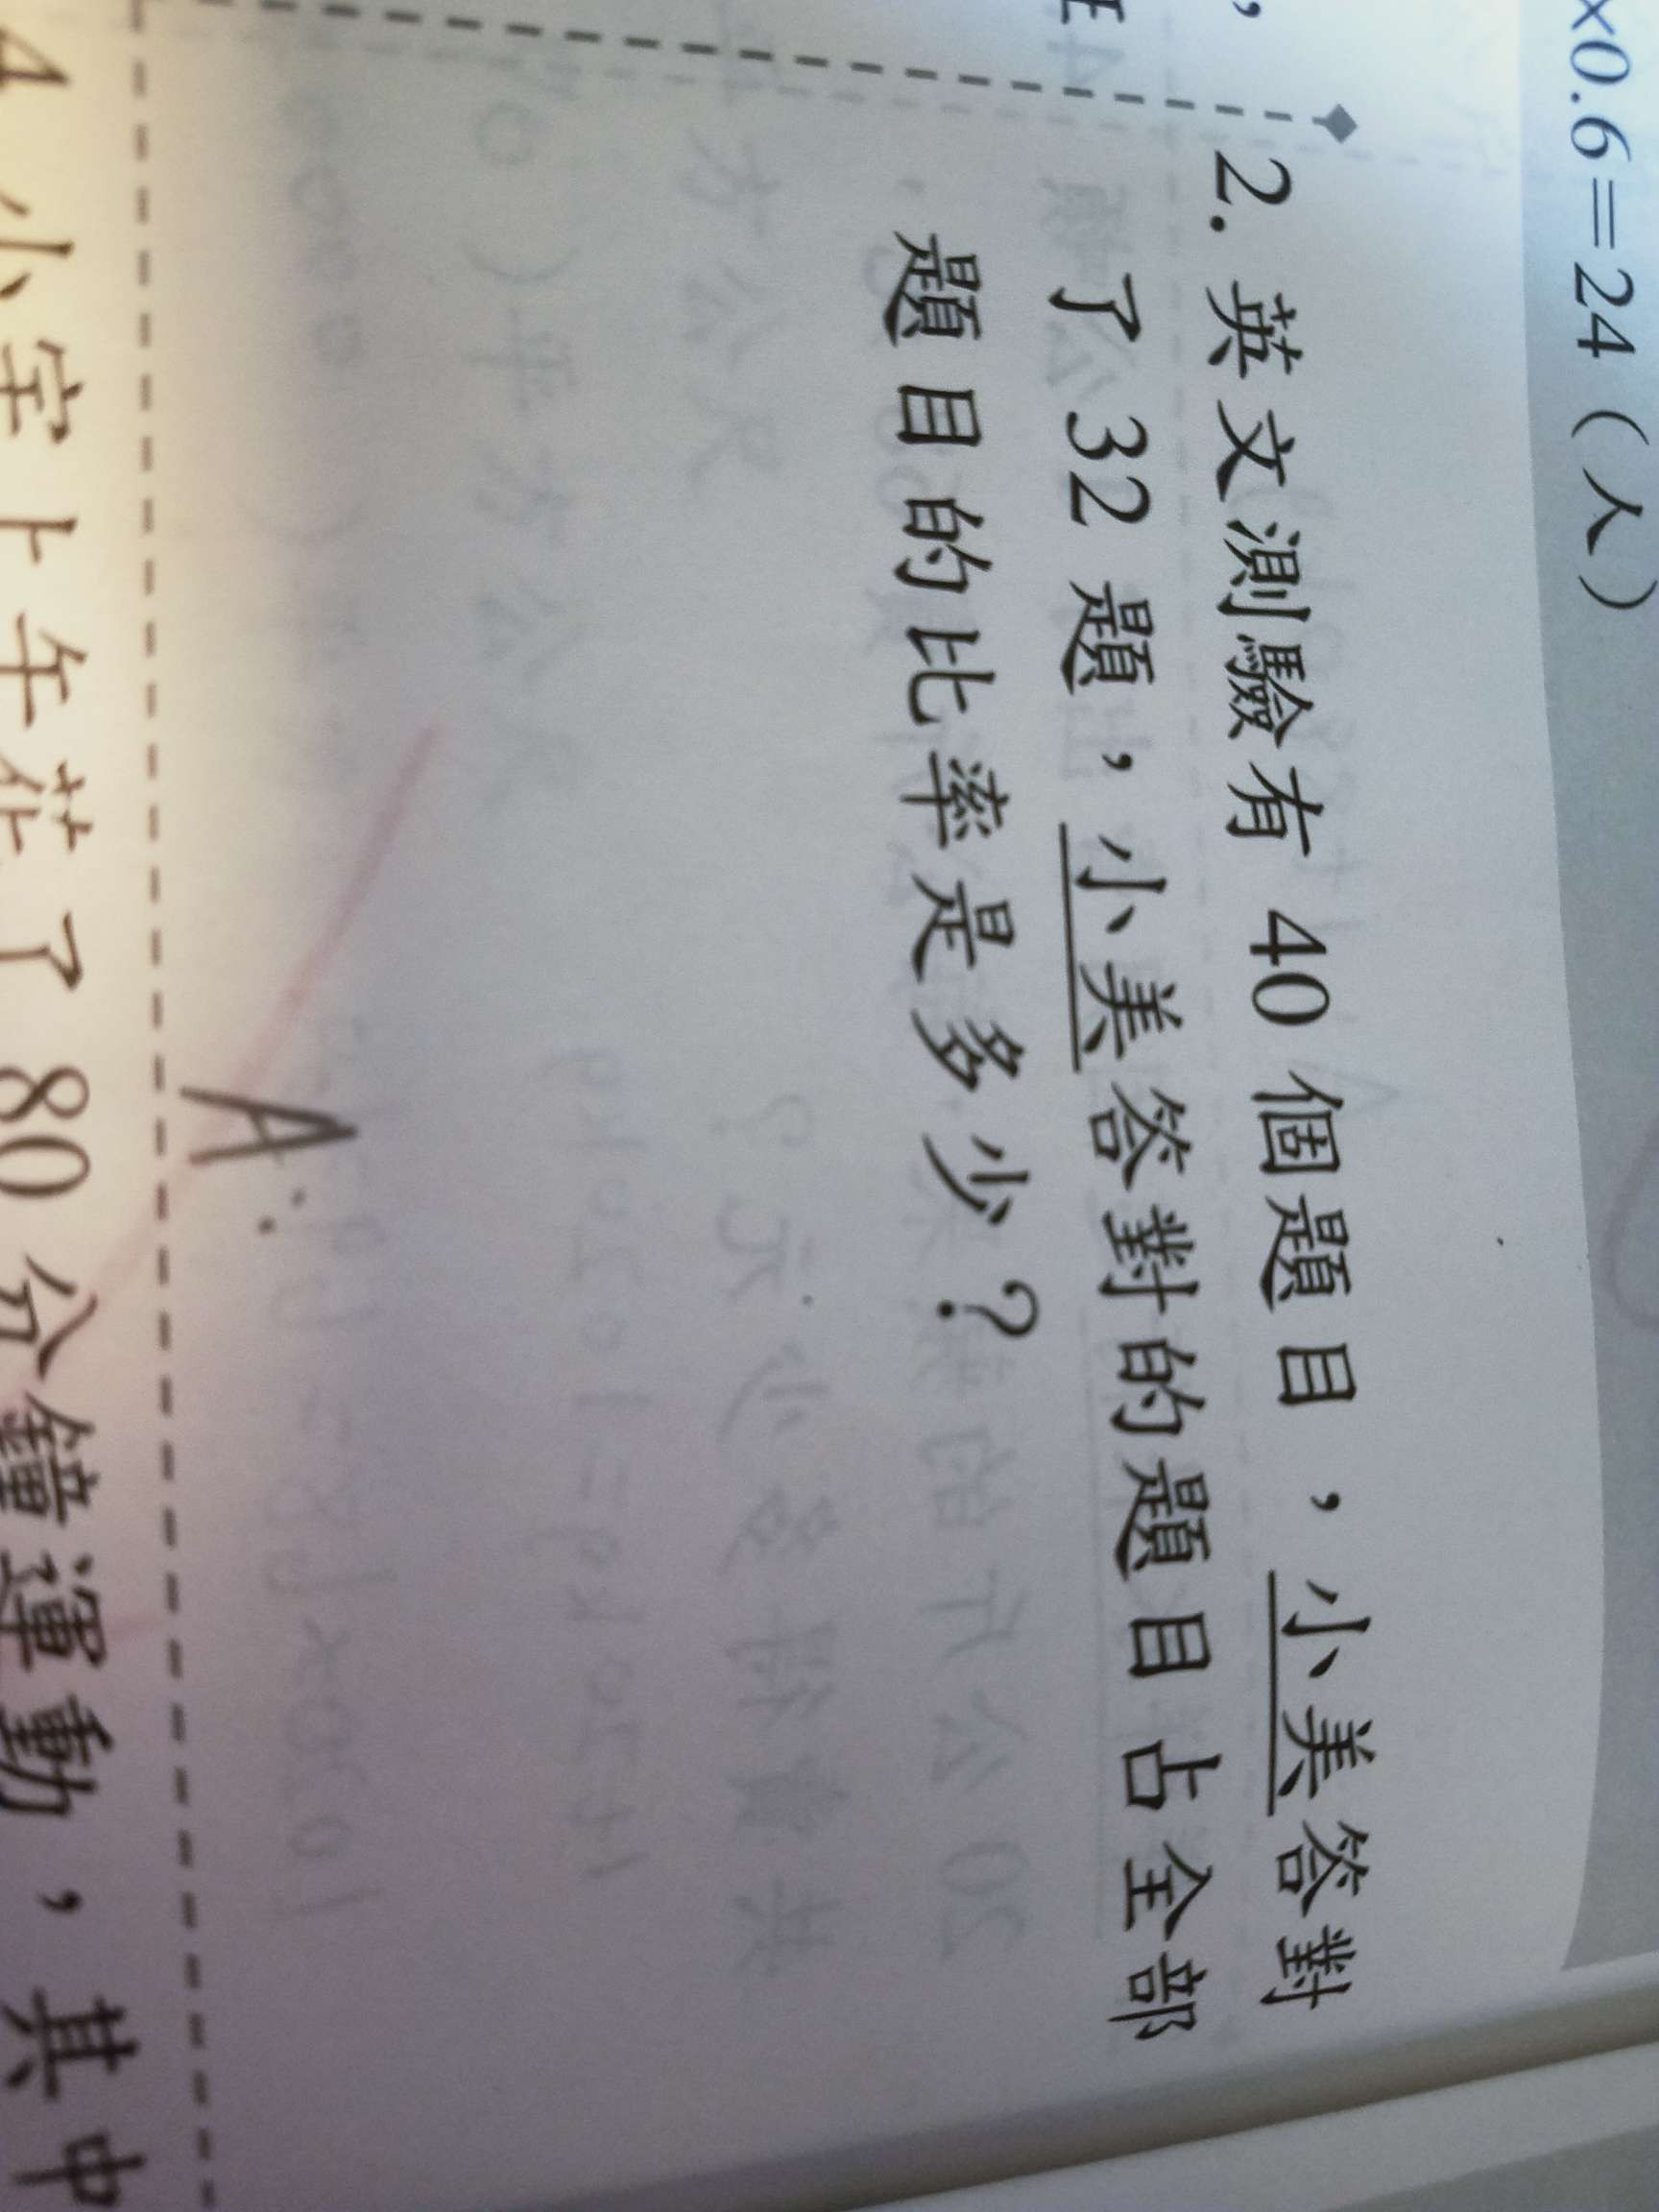 ×0.6=24（人）
2. 英文測驗有 40 個題目，小美答對
了 32 題，小美答對的題目占全部
題目的比率是多少？
A:
4 小宇上午花了 80 分鐘運動，其中